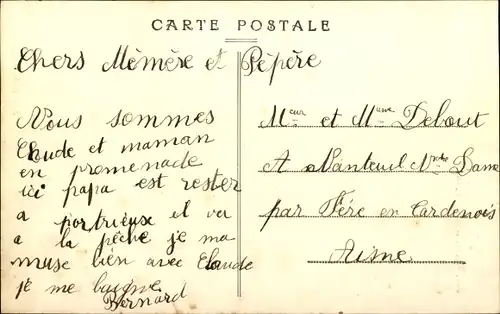 CARTE POSTALE
Chers Mèmère et Pèpère
Nous sommes
Claude et maman
en promenade
ici papa est rester
a portrieuse il va
a la pêche je ma
muse bien avec Claude
je me baigne
Bernard
Meur et Mame Debout
A Nanteuil Notre Dame
par Fère en Tardenois
Aisne